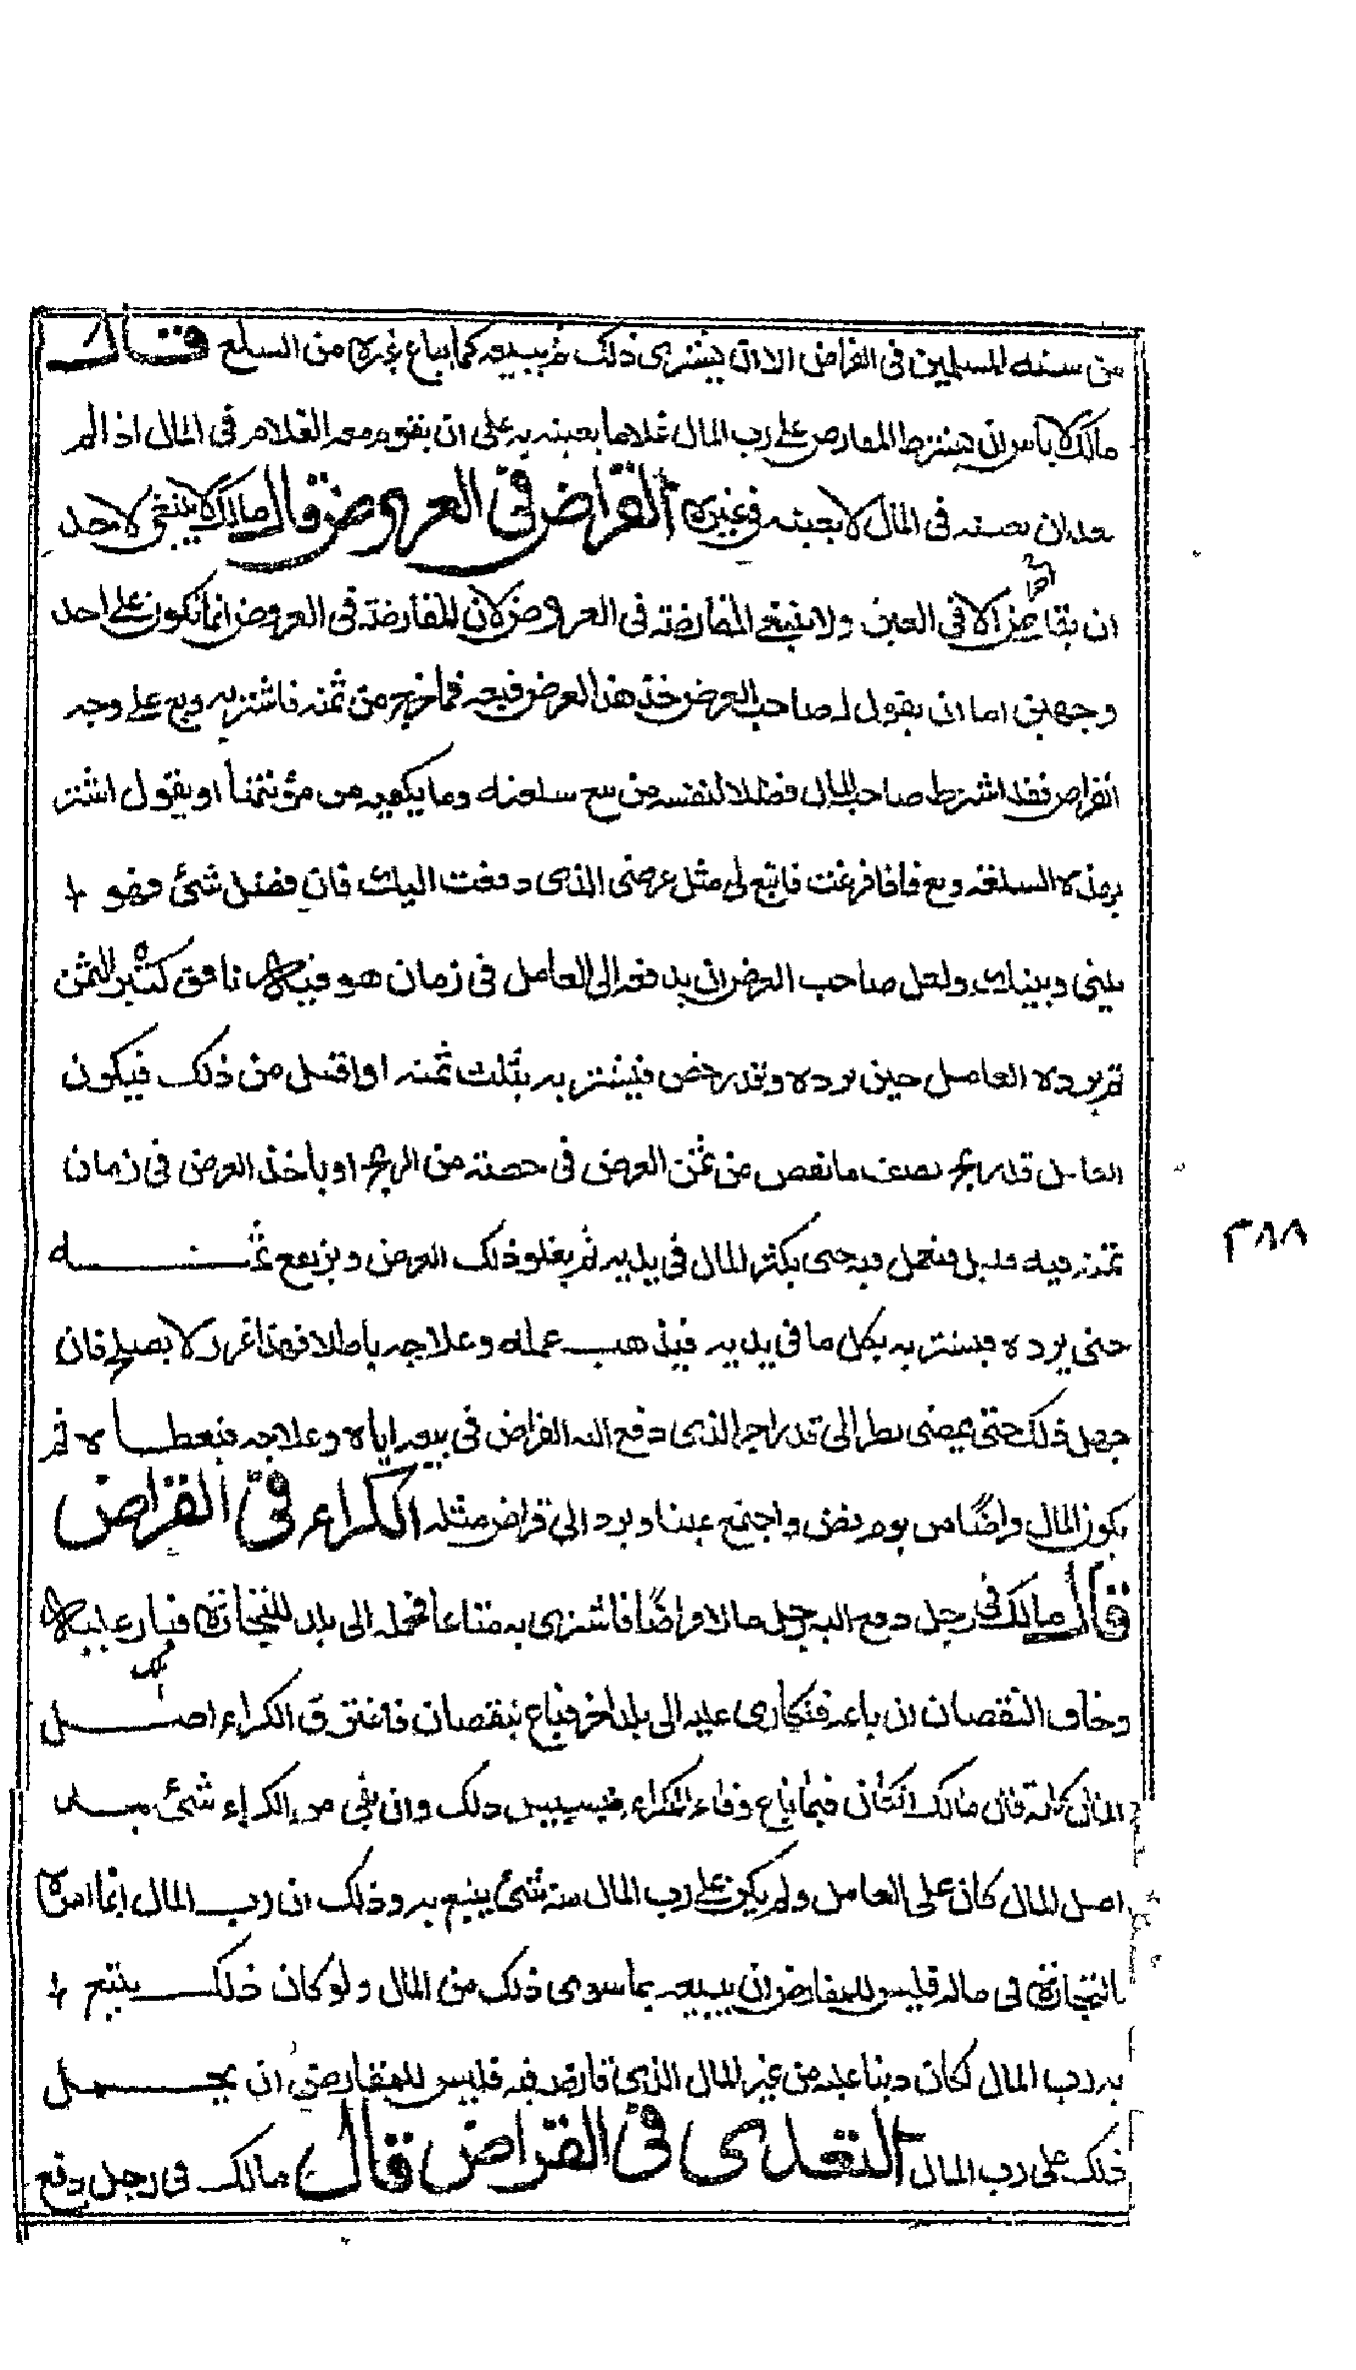 من سنه المسلمين فى القراض الا ان يشترى ذلك ثم يبيعه كما يباع غيره من السلع قال
مالك لا باس ان يشترط المقارض على رب المال غلاما بعينه به على ان يقوم معه الغلام فى المال اذا لم
يعد ان يعينه فى المال لا يعينه فى غيره القراض فى العروض قال مالك لا ينبغى لاحد
ان يقارض احدا الا فى العين ولا ينبغى المقارضة فى العروض لان المقارضة فى العروض انما تكون على احد
وجهين اما ان يقول له صاحب العرض خذ هذا العرض فبعه فما خرج من ثمنه فاشتر به وبع على وجه
القراض فقد اشترط صاحب المال فضلا لنفسه من بيع سلعته وما يكفيه من مؤنتها او يقول اشتر
بهذه السلعة وبع فاذا فرغت فابتع لى مثل عرضى الذى دفعت اليك فان فضل شئ فهو
بينى وبينك ولعل صاحب العرض ان يدفعه الى العامل فى زمان هو فيه نافق كثير الثمن
ثم يرده العامل حين يرده وقد رخص فيشتريه بثلث ثمنه او اقل من ذلك فيكون
العامل قد ربح نصف ما نقص من ثمن العرض فى حصته من الربح او ياخذ العرض فى زمان
ثمنه فيه قليل فيعمل فيه حتى يكثر المال فى يديه ثم يغلو ذلك العرض ويرتفع ثمنه
حتى يرده فيشتريه بكل ما فى يديه فيذهب عمله وعلاجه باطلا فهذا غرر لا يصلح فان
جهل ذلك حتى يمضى نظر الى قدر اجر الذى دفع اليه القراض فى بيعه اياه وعلاجه فيعطاه ثم
يكون المال قراضا من يوم نض واجتمع عينا ويرد الى قراض مثله الكراء فى القراض
قال مالك فى رجل دفع الى رجل مالا قراضا فاشترى به متاعا فحمله الى بلد للتجارة فبار عليه
وخاف النقصان ان باعه فتكارى عليه الى بلد اخر فباع بنقصان فاغترق الكراء اصل
المال كله قال مالك ان كان فيما باع وفاء للكراء فسبيل ذلك وان بقى من الكراء شئ بعد
اصل المال كان على العامل ولم يكن على رب المال منه شئ يتبع به وذلك ان رب المال انما امره
بالتجارة فى ماله فليس للمقارض ان يبيعه بما سوى ذلك من المال ولو كان ذلك يتبع
به رب المال لكان دينا عليه من غير المال الذى قارضه فيه فليس للمقارض ان يحمل
ذلك على رب المال التعدى فى القراض قال مالك فى رجل دفع
٣٨٨